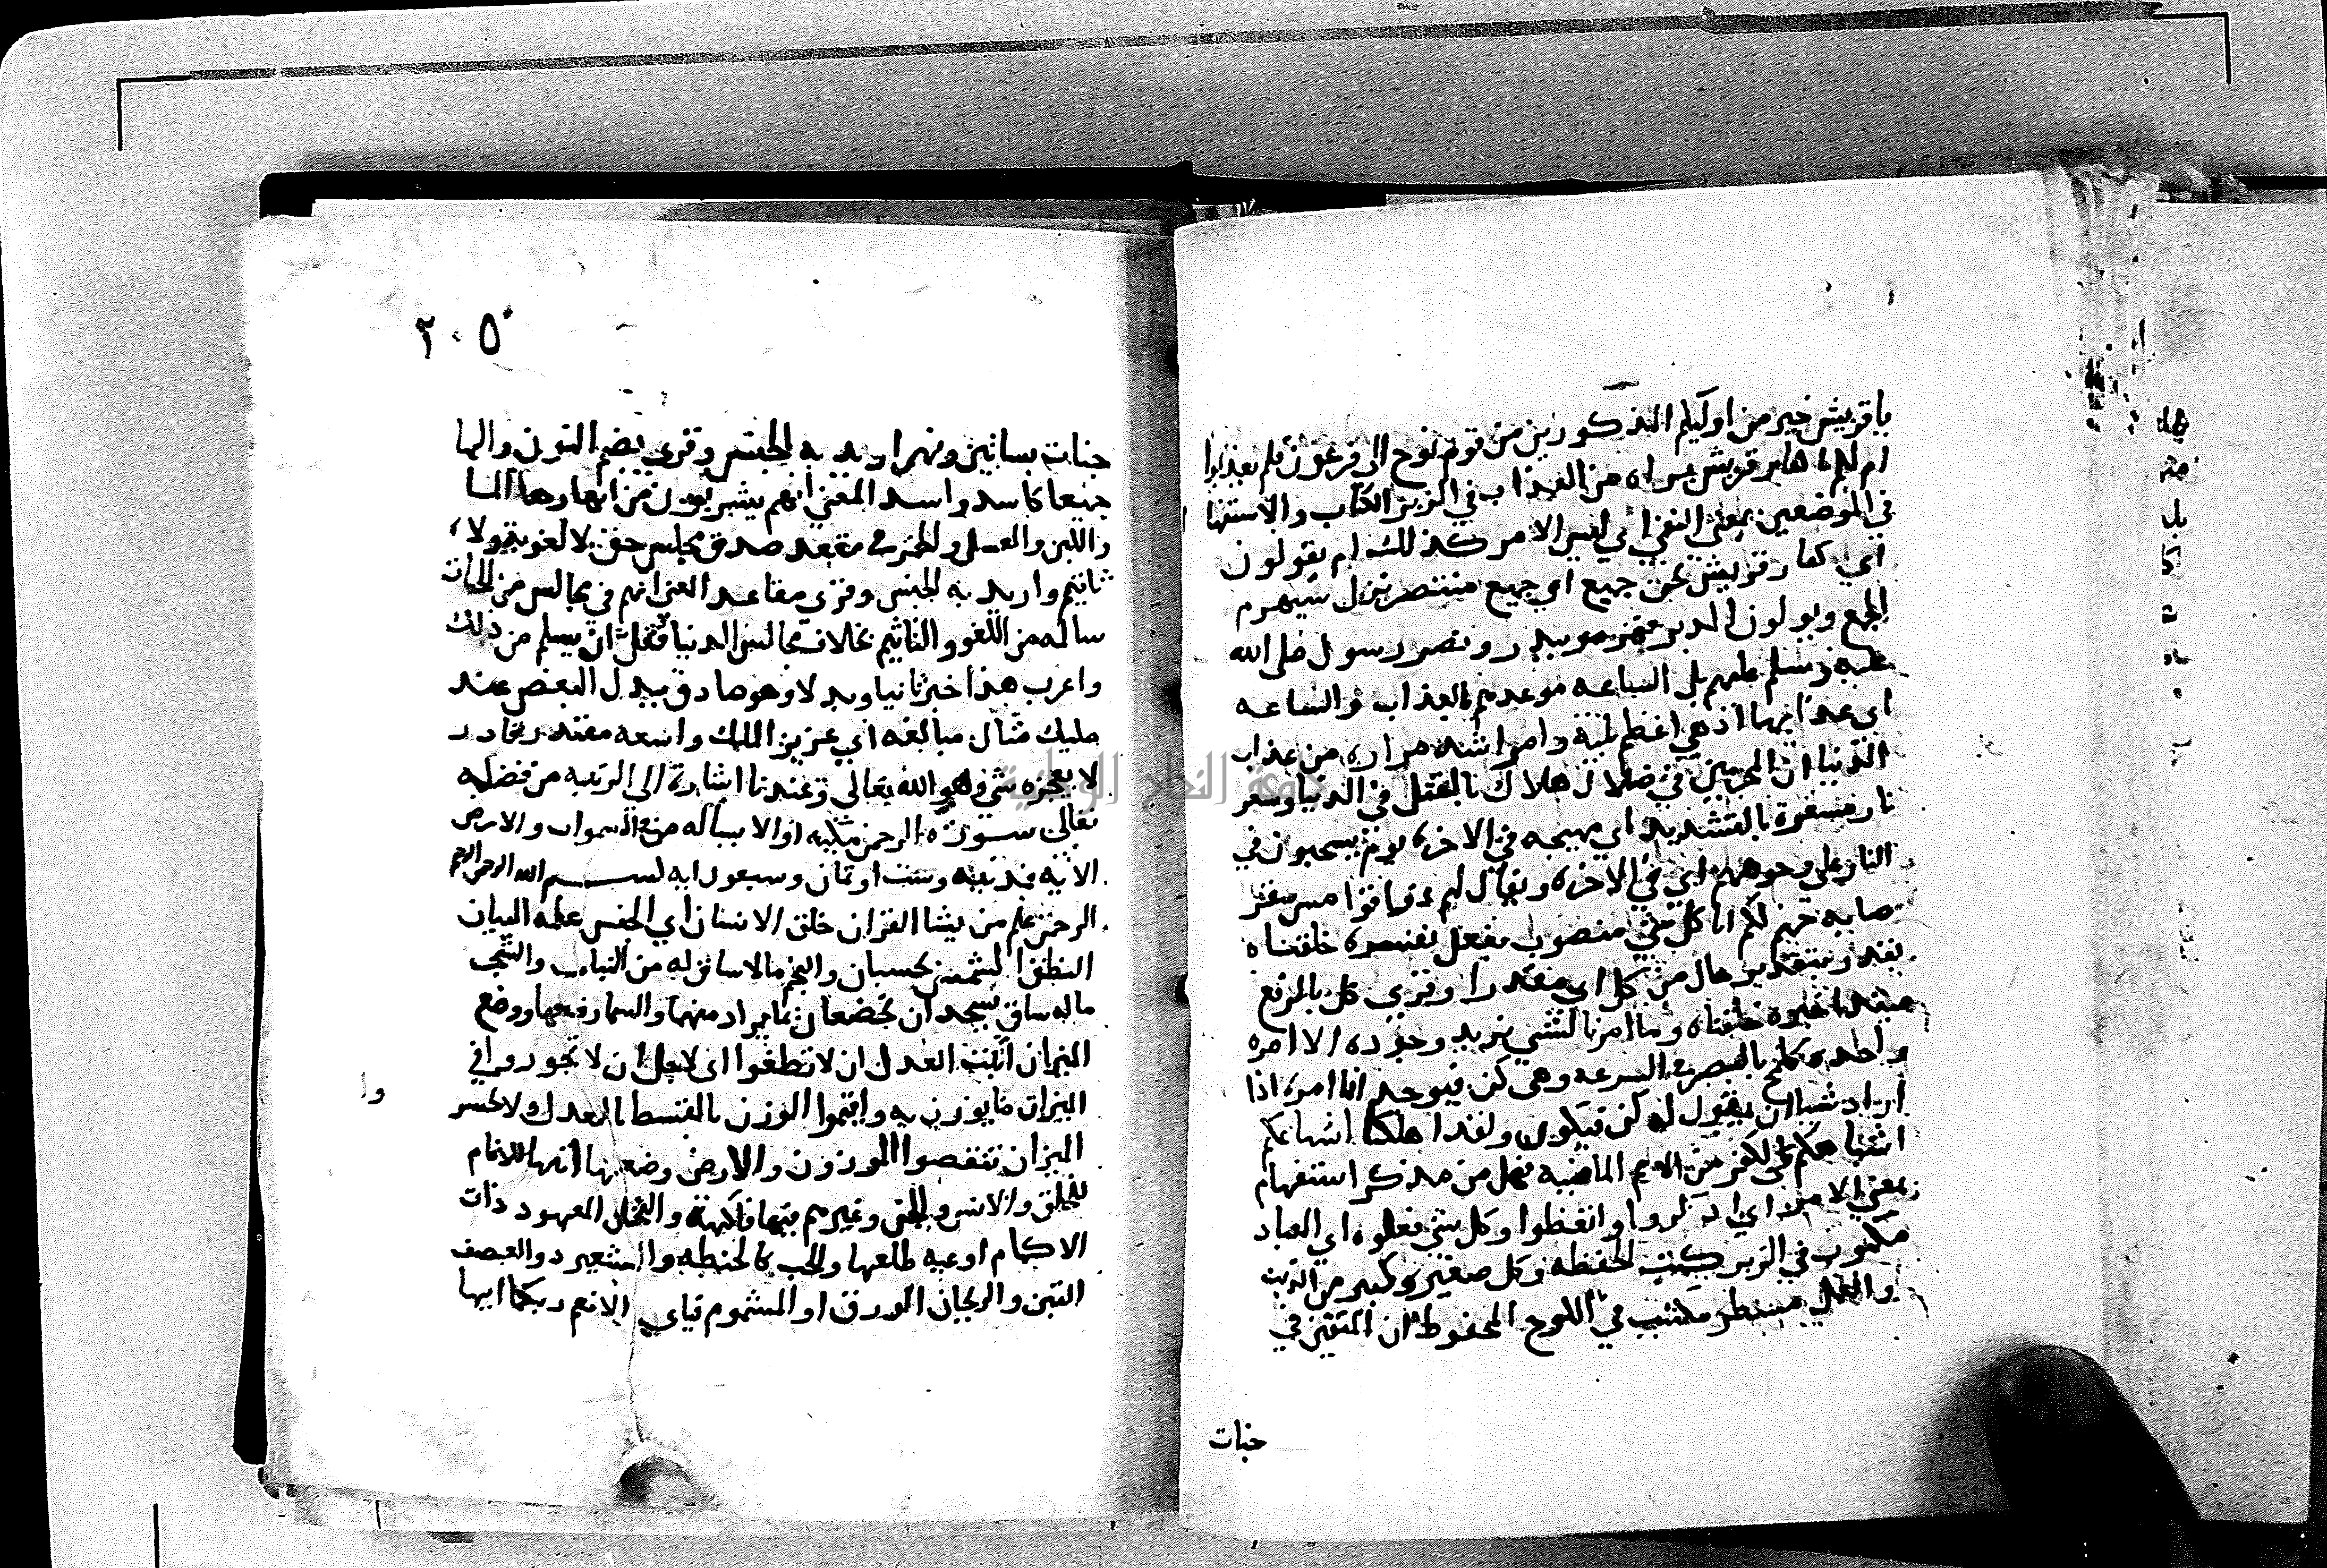 يا قريش خير من اوليكم المذكورين من قوم نوح الى فرعون فلم يعذبوا
ام لكم يا كفار قريش براه من العذاب في الزبر الكتاب والاستفها
في الموضعين بمعنى النفي اي ليس الامر كذلك ام يقولون
اي كفار قريش نحن جميع اي جمع منتصر نزل سيهزم
الجمع ويولون الدبر فهزموا ببدر ونصر رسول صلى الله
عليه وسلم عليهم بل الساعه موعدهم بالعذاب والساعه
اي عذابها ادهى اعظم بلية وامر اشد مراره من عذاب
الدنيا ان المجرمين في ضلال هلاك بالقتل في الدنيا وسعر
نار مسعرة بالتشديد اي مهيجه في الاخرة يوم يسحبون في
النار على وجوههم اي في الاخرة ويقال لهم ذوقوا مس سقر
اصابه جهنم لكم انا كل شي منصوب بفعل يفسره خلقناه
بقدر بتقدير حال من كل اي مقدرا وقري كل بالرفع
مبتدا خبره خلقناه وما امرنا لشي نريد وجوده الا امره
واحدة كلمح بالبصر في السرعه وهي كن فيوجد انما امره اذا
اراد شيا ان يقول له كن فيكون ولقد اهلكنا اشياعكم
اشباهكم في الكفر من الامم الماضيه فهل من مدكر استفهام
بمعنى الامر اي اذكروا واتعظوا وكل شي فعلوه اي العباد
مكتوب في الزبر كتب الحفظه وكل صغير وكبير من الذنب
والعمل مستطر مكتتب في اللوح المحفوظ ان المتقين في
جنات
٢٠٥
جنات بساتين ونهر اريد به الجنس وقري بضم النون والها
جمعا كاسد واسد المعنى انهم يشربون من انهارها الما
واللبن والعسل والخمر في مقعد صدق مجلس حق لا لغو فيه ولا
تاثيم واريد به الجنس وقري مقاعد المعنى انهم في مجالس من الجنات
سالمه من اللغو والتاثيم بخلاف مجالس الدنيا فقل ان يسلم من ذلك
واعرب هذا خبرا ثانيا وبدلا وهو صادق ببدل البعض عند
مليك مثال مبالغه اي عزيز الملك واسعه مقتدر قادر
لا يعجزه شي وهو الله تعالى وعند نا اشارة الى الرتبه من فضله
تعالى سورة الرحمن مكيه او الا يساله من في السموات والارض
الايه فمدنيه وست او ثمان وسبعون ايه بسم الله الرحمن الرحيم
الرحمن علم من يشا القران خلق الانسان اي الجنس علمه البيان
النطق الشمس بحسبان والنجم ما لا ساق له من النبات والشجر
ما له ساق يسجدان يخضعان بما يراد منهما والسما رفعها ووضع
الميزان اثبت العدل ان لا تطغوا اي لاجل ان لا تجوروا في
الميزان ما يوزن به واقيموا الوزن بالقسط بالعدل ولا تخسروا
الميزان تنقصوا الموزون والارض وضعها اثبتها للانام
للخلق والانس والجن وغيرهم فيها فاكهة والنخل المعهود ذات
الاكمام اوعيه طلعها والحب كالحنطه والشعير ذو العصف
التبن والريحان الورق او المشموم فباي الانعم ربكما ايها